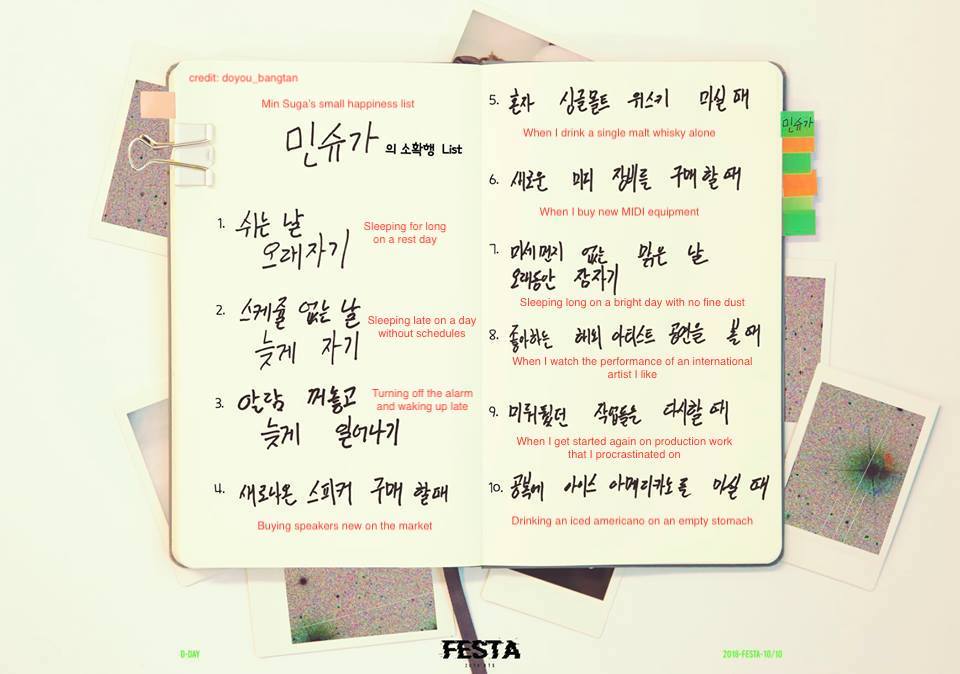 credit: doyou_bangtan
Min Suga's small happiness list
민슈가 의 소확행 List
1. 쉬는 날
오래자기
Sleeping for long
on a rest day
2. 스케줄 없는 날
늦게 자기
Sleeping late on a day
without schedules
3. 알람 꺼놓고
늦게 일어나기
Turning off the alarm
and waking up late
4. 새로나온 스피커 구매 할때
Buying speakers new on the market
5. 혼자 싱글몰트 위스키 마실 때
When I drink a single malt whisky alone
6. 새로운 미디 장비를 구매 할 때
When I buy new MIDI equipment
7. 미세먼지 없는 맑은 날
오래동안 잠자기
Sleeping long on a bright day with no fine dust
8. 좋아하는 해외 아티스트 공연을 볼 때
When I watch the performance of an international
artist I like
9. 미뤄뒀던 작업들을 다시할 때
When I get started again on production work
that I procrastinated on
10. 공복에 아이스 아메리카노를 마실 때
Drinking an iced americano on an empty stomach
민슈가
D-DAY
FESTA
2018 BTS
2018-FESTA-10/10